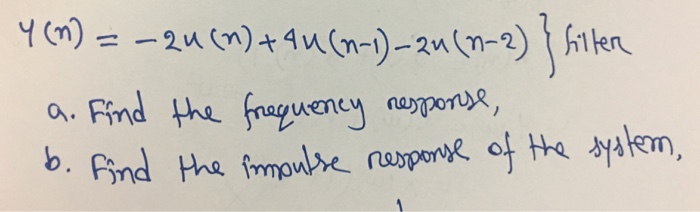 Y(n) = -2u(n)+4u(n-1)-2u(n-2) } filter
a. Find the frequency response,
b. Find the impulse response of the system,